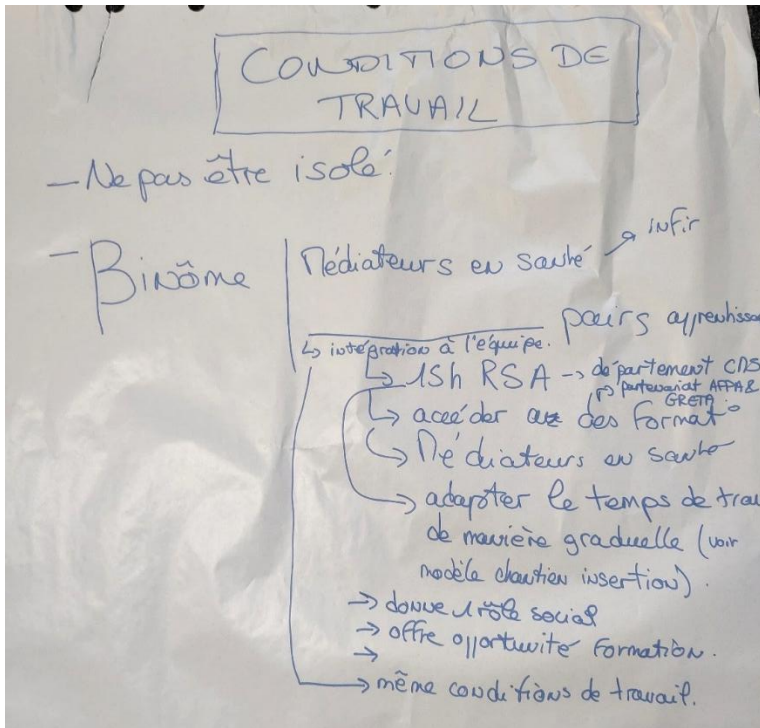 CONDITIONS DE
TRAVAIL
- Ne pas être isolé.
- Binôme
Médiateurs en santé → infir
pairs apprentissa
↳ intégration à l'équipe.
↳ 15h RSA → département CDS
↳ partenariat AFPA &
GRETA
↳ accéder des format°
↳ Médiateurs en santé
→ adapter le temps de trav
de manière graduelle (voir
modèle chantier insertion).
→ donne 1 rôle social
→ offre opportunité formation.
→
→ même conditions de travail.